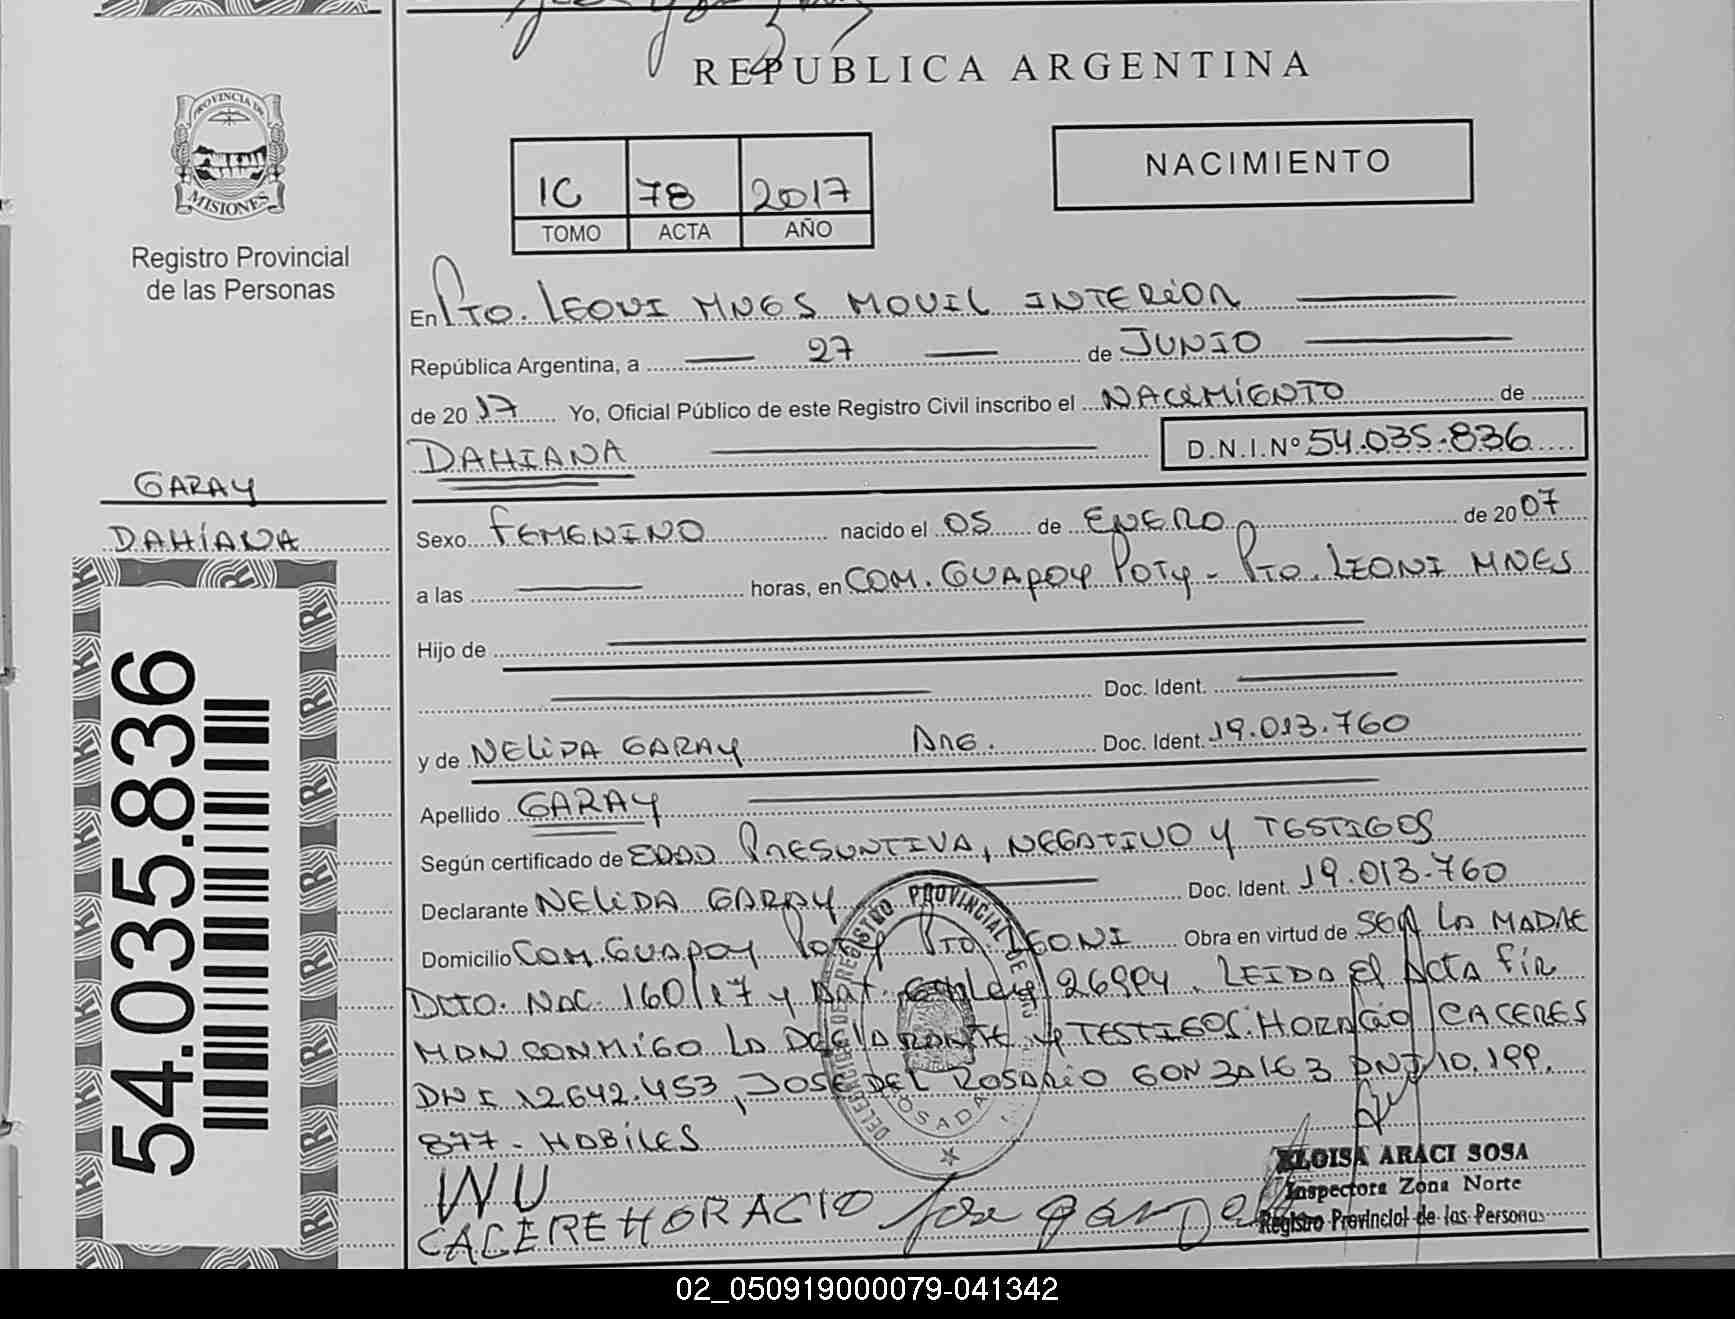 REPUBLICA ARGENTINA
PROVINCIA DE
MISIONES
Registro Provincial
de las Personas
IC 78 2017
TOMO ACTA AÑO
NACIMIENTO
En Pto. LEONI MNES MOVIL INTERIOR
República Argentina, a 27 de JUNIO
de 2017 Yo, Oficial Público de este Registro Civil inscribo el NACIMIENTO de
DAHIANA D.N.I. Nº 54.035.836
GARAY
DAHIANA
54.035.836
Sexo FEMENINO nacido el 05 de ENERO de 2007
a las horas, en COM. GUAPOY POTY - PTO. LEONI MNES
Hijo de
Doc. Ident.
y de NELIDA GARAY ARG. Doc. Ident. 19.013.760
Apellido GARAY
Según certificado de EDAD PRESUNTIVA, NEGATIVO Y TESTIGOS
Declarante NELIDA GARAY Doc. Ident. 19.013.760
Domicilio COM. GUAPOY POTY PTO. LEONI Obra en virtud de SER LA MADRE
DCTO. NAC. 160/17 y 26994. LEIDA El ACTA FIR
MAN CONMIGO LA DECLARANTE y TESTIGOS: HORACIO CACERES
DNI 12.642.453, JOSE DEL ROSARIO GONZALEZ DNI 10.199.
877 - HABILES
CACERE HORACIO Jose
DELEGACION DE REGISTRO PROVINCIAL DE
POSADAS
ELOISA ARACI SOSA
Inspectora Zona Norte
Registro Provincial de las Personas
02_050919000079-041342